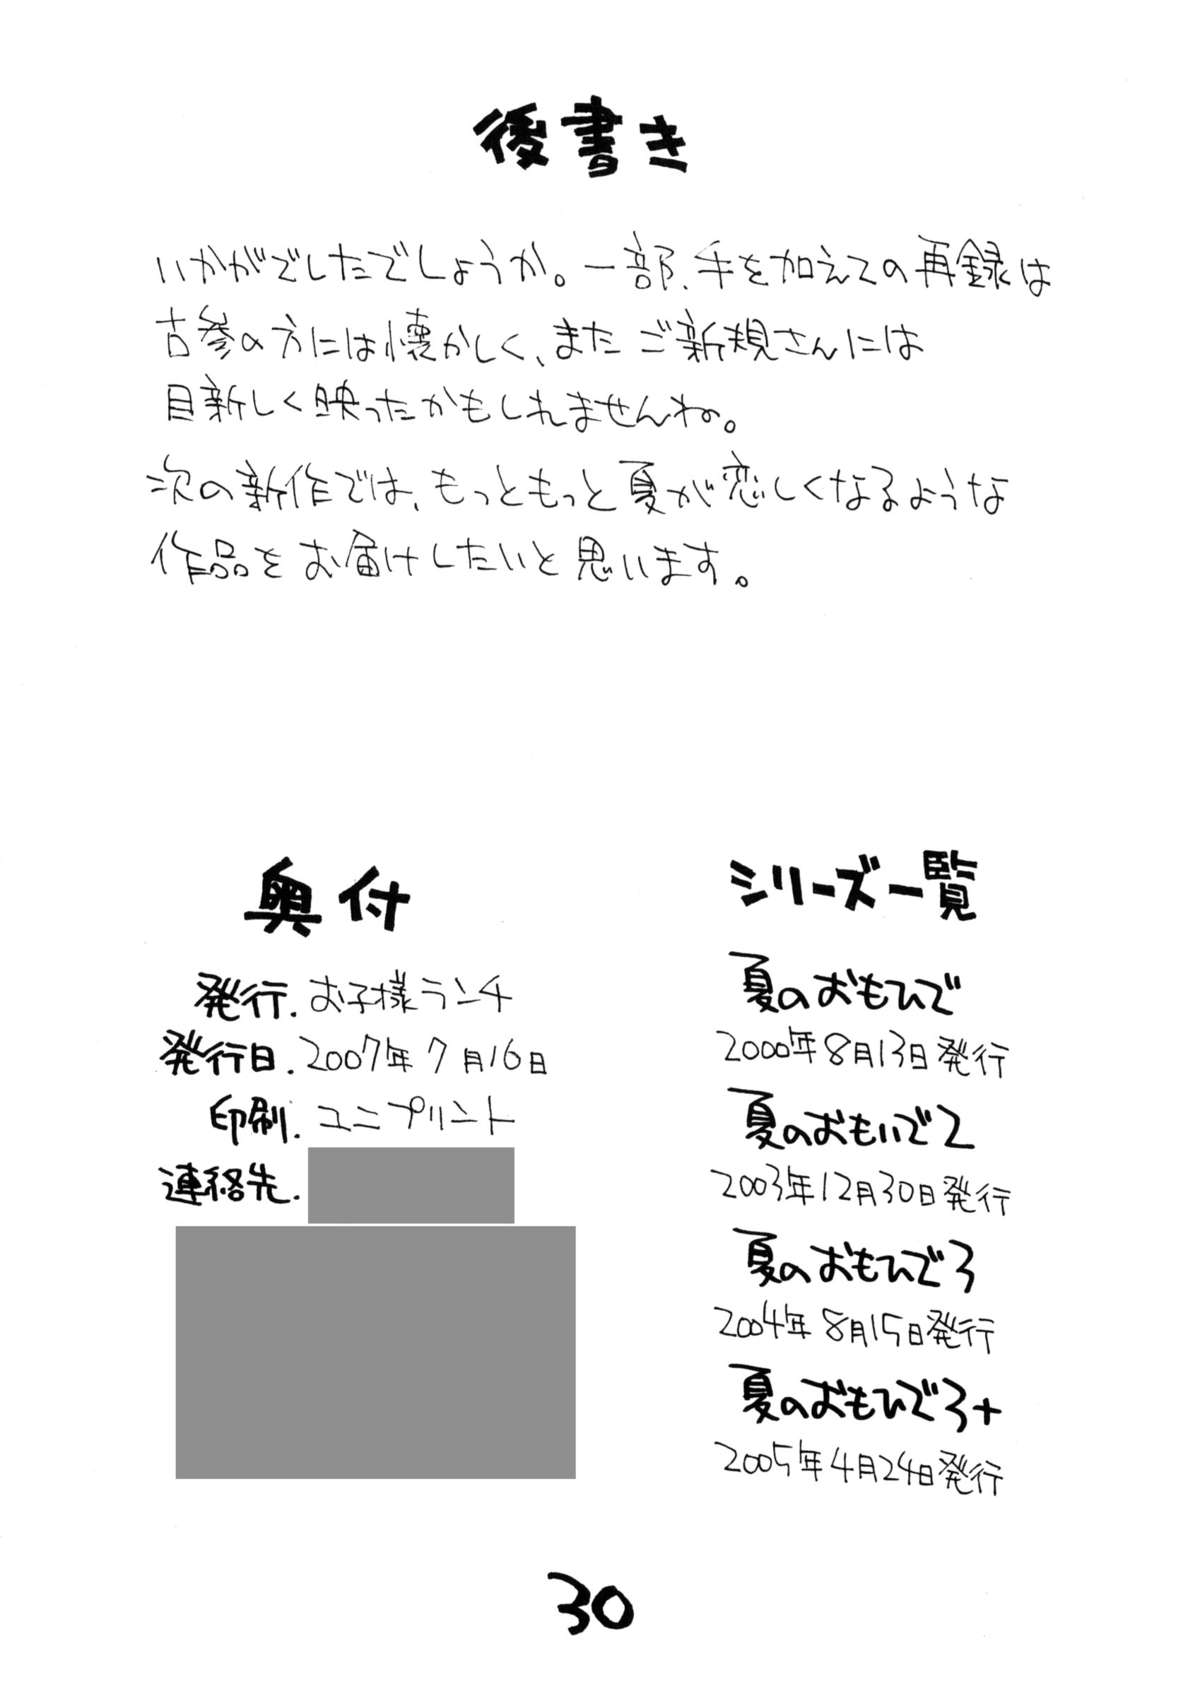 後書き
いかがでしたでしょうか。一部、手を加えての再録は
古参の方には懐かしく、また ご新規さんには
目新しく映ったかもしれませんね。
次の新作では、もっともっと夏が恋しくなるような
作品をお届けしたいと思います。
奥付
発行. お子様ランチ
発行日. 2007年7月16日
印刷. ユニプリント
連絡先.
シリーズ一覧
夏のおもひで
2000年8月13日発行
夏のおもいで2
2003年12月30日発行
夏のおもひで3
2004年8月15日発行
夏のおもひで3+
2005年4月24日発行
30